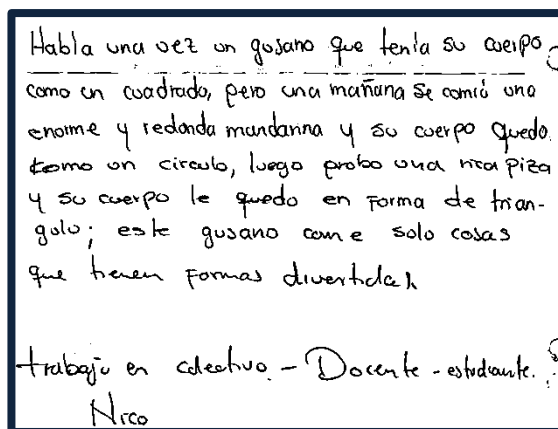 Habla una vez un gusano que tenla su cuerpo
como un cuadrado, pero una mañana se comió una
enorme y redonda mandarina y su cuerpo quedo
como un circulo, luego probo una rica piza
y su cuerpo le quedo en Forma de trian-
gulo; este gusano come solo cosas
que tienen Formas divertidas
trabajo en colectivo. - Docente - estudiante.
Nico